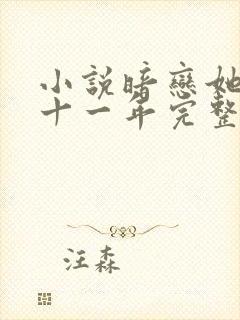 小説暗戀她
十一年完整
汪森